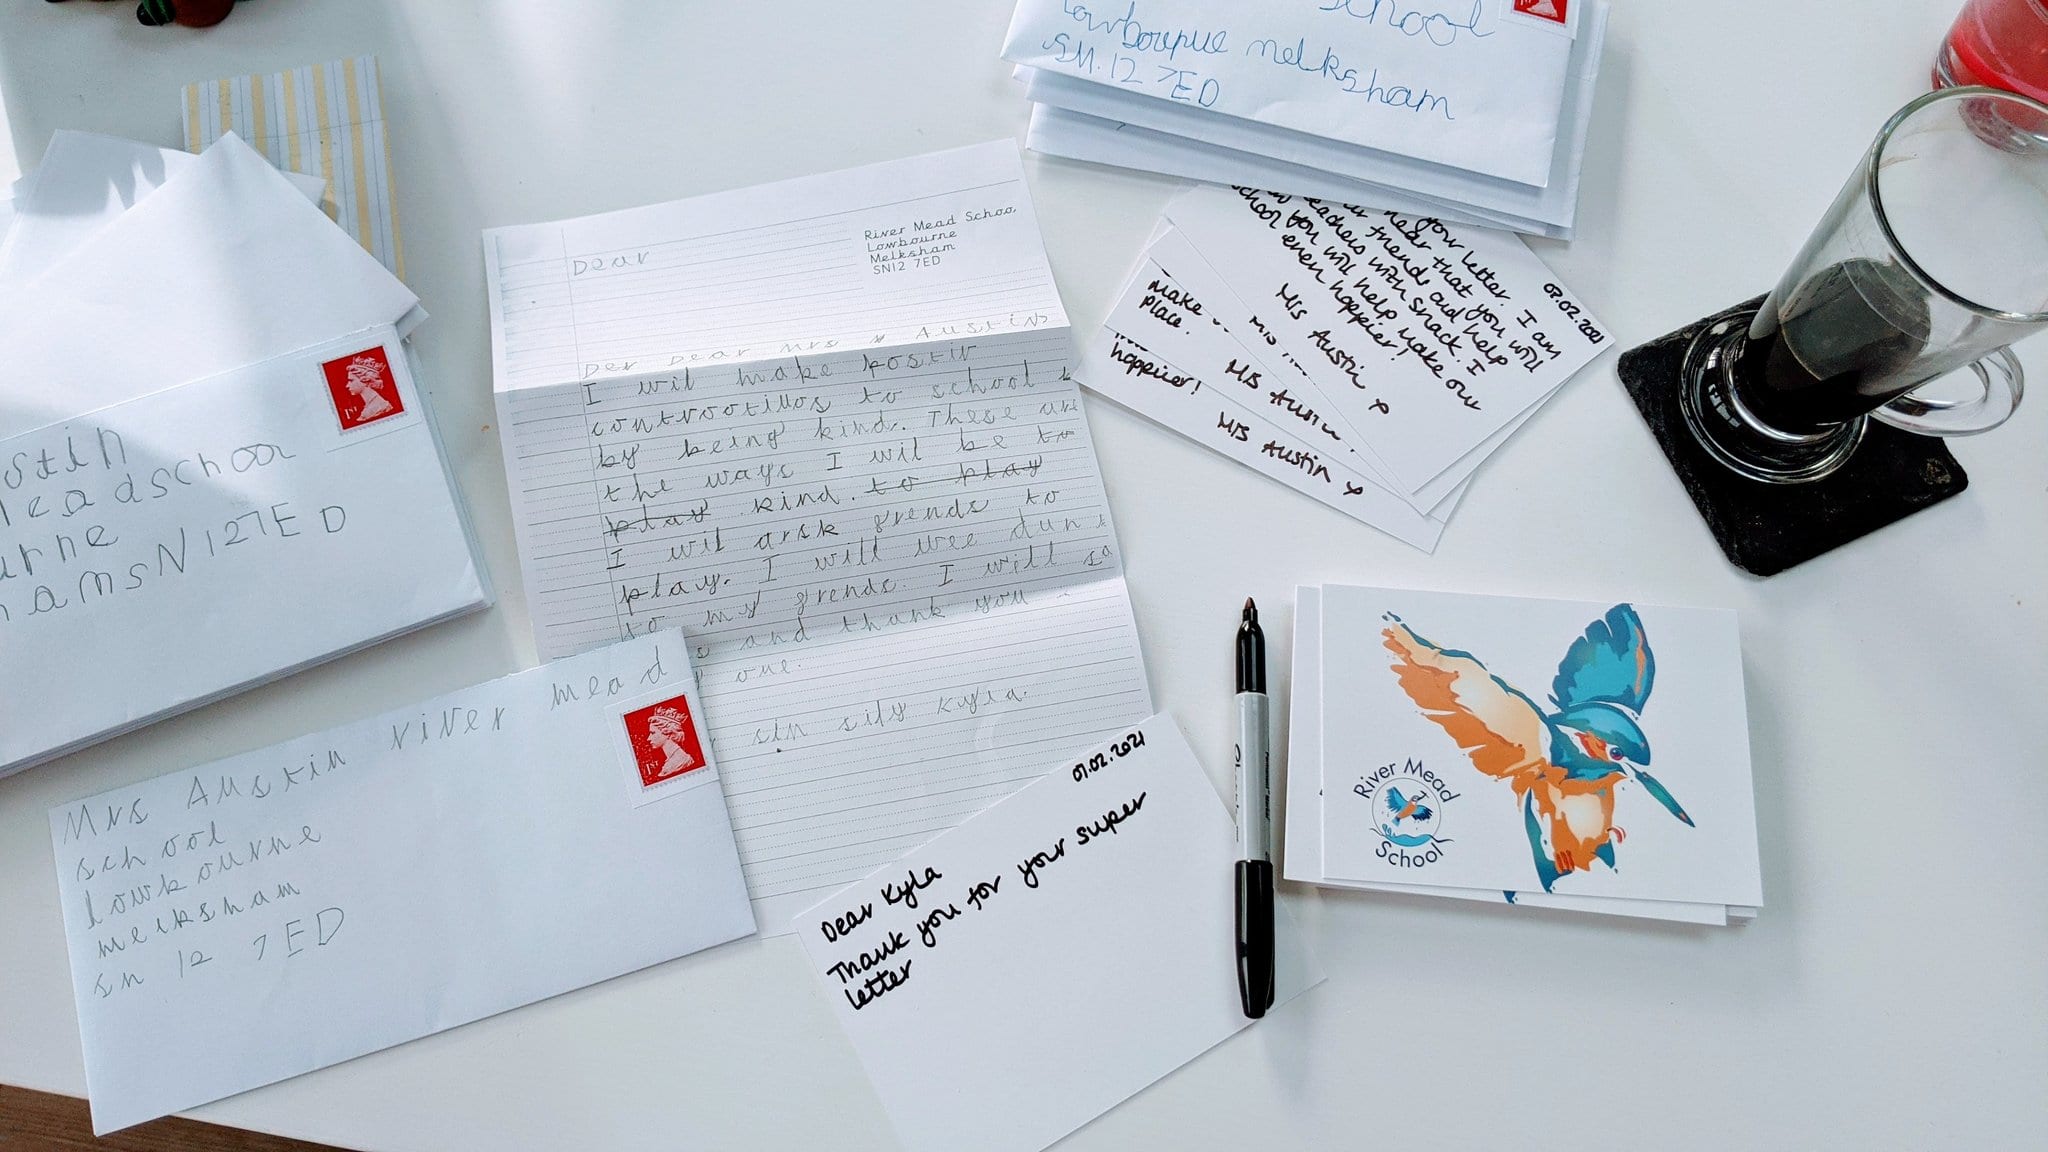 School
Melksham
SN12 7ED
River Mead School
Lowbourne
Melksham
SN12 7ED
Dear
Der Dear Mrs Austin
I wil make
to school
by being kind. These are
the ways I wil be to
play kind. to play
I wil arsk frends to
play. I will
to my frends. I will
and thank you
one.
sin sily Kyla.
your letter. I am
hear that you will
friends and help
teachers with snack. I
you will help make our
school even happier!
Mrs Austin x
02.02.2021
Make
place.
Mrs Austin
happier!
Mrs Austin x
1ST
stin
eadschool
urne
hamsN127ED
Mrs Austin river mead
school
lowbourne
melksham
sn 12 7ED
1ST
07.02.2021
Dear Kyla
Thank you for your super
letter
River Mead
School